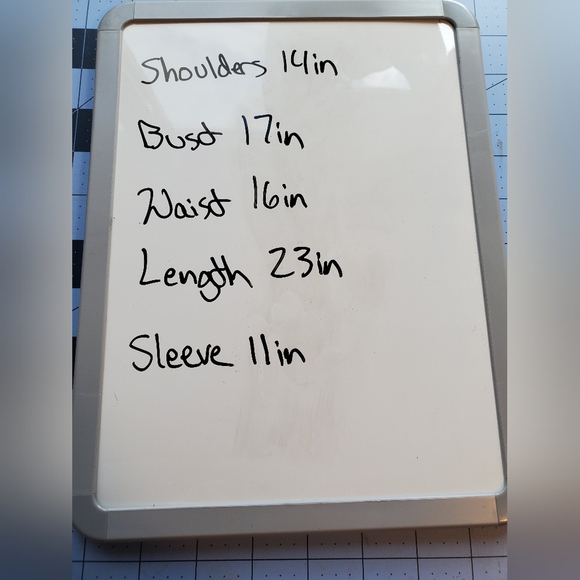 Shoulders 14in
Bust 17in
Waist 16in
Length 23in
Sleeve 11in